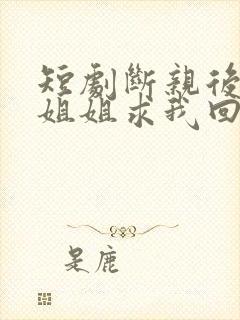 短劇斷親後
姐姐求我回
是鹿